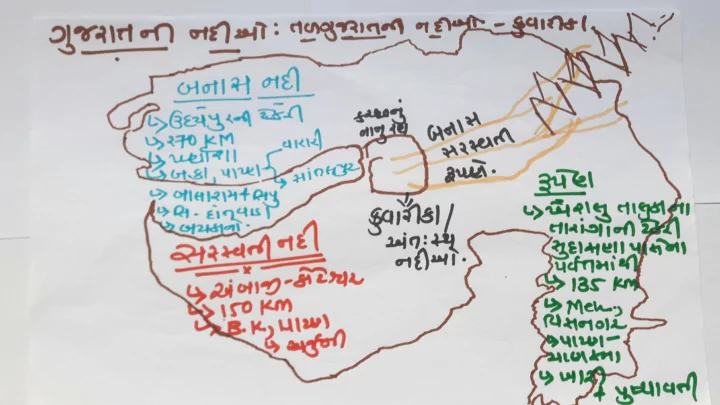 ગુજરાતની નદીઓ: તળગુજરાતની નદીઓ - કુંવારીકા.
બનાસ નદી
ઉદયપુરની ટેકરી
270 KM
બ.કાં, પાટણ
વારાહી
સાંતલપુર
બાલારામ + સિપુ
સિ. દાંતીવાડા
કચ્છનું
નાનુ રણ
બનાસ
સરસ્વતી
રૂપેણ.
કુંવારીકા/
અંત:સ્થ
નદીઓ.
સરસ્વતી નદી
અંબાજી-કોટેશ્વર
150 KM
B.K, પાટણ
અર્જુની
રૂપેણ
ખેરાલુ તાલુકાના
તારંગાની ટેકરી
સુદાસણા પાસેના
પર્વતમાંથી
135 KM
Meh,
વિસનગર
પાટણ-
ચાણસ્મા
ખારી
+ પુષ્પાવતી